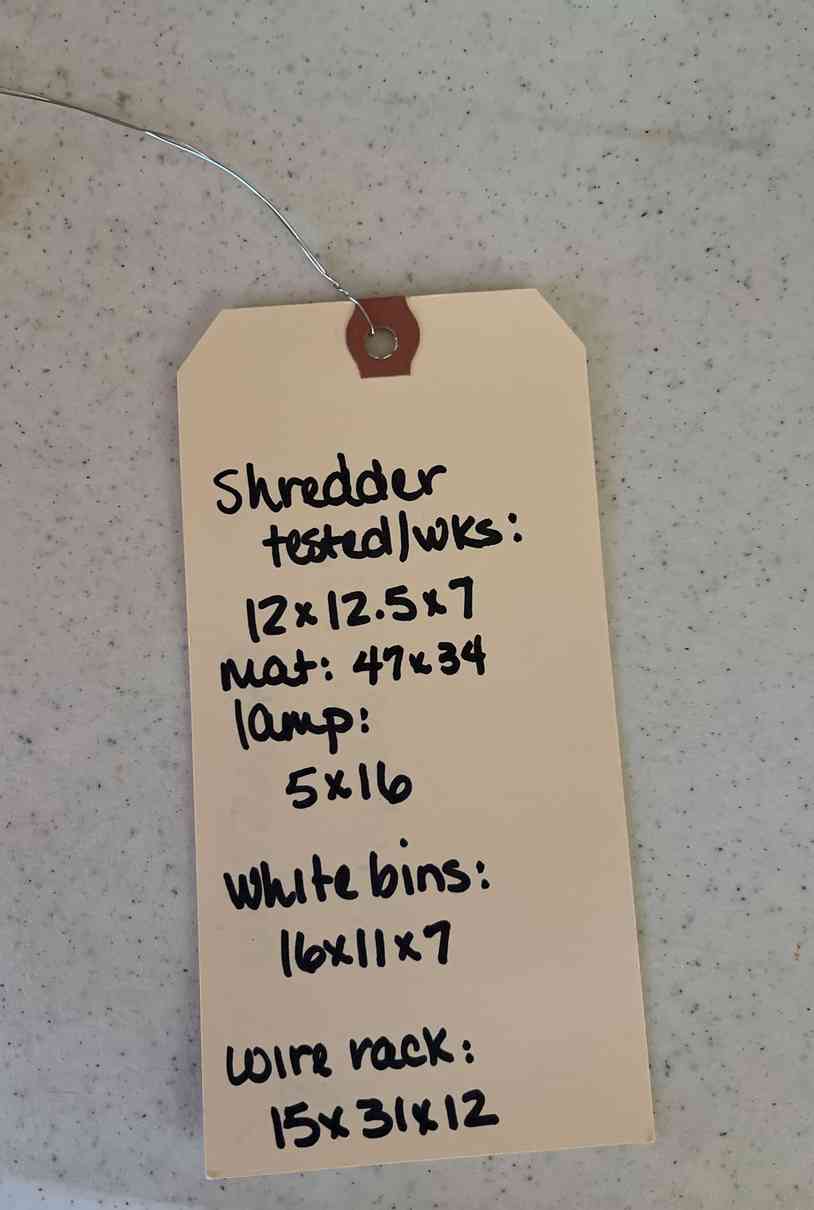 Shredder
tested/wks:
12x12.5x7
Mat: 47x34
lamp:
5x16
White bins:
16x11x7
wire rack:
15x31x12